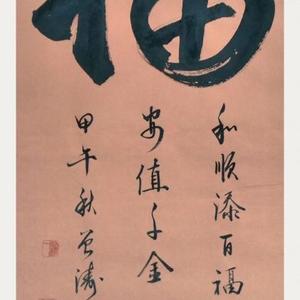 福
和順添百福
安值千金
甲午秋曾濤